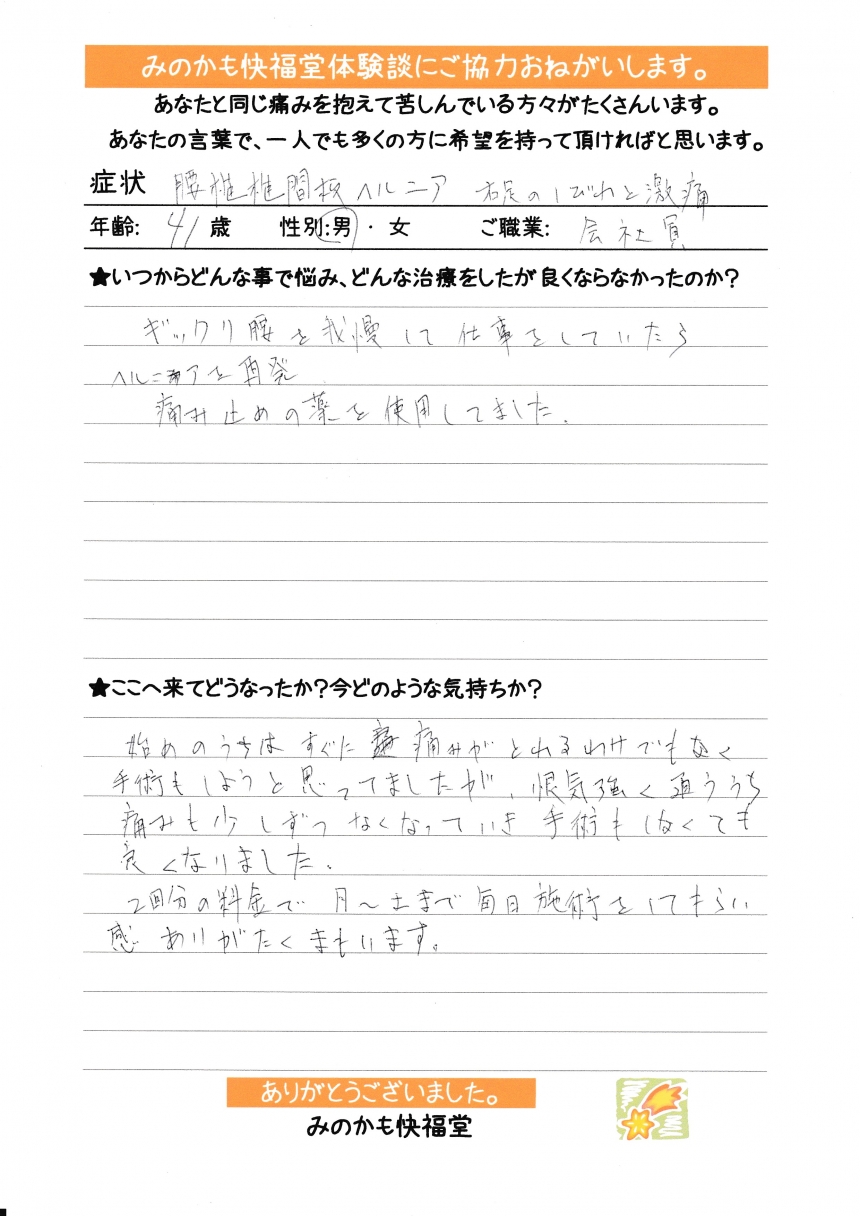 みのかも快福堂体験談にご協力おねがいします。
あなたと同じ痛みを抱えて苦しんでいる方々がたくさんいます。
あなたの言葉で、一人でも多くの方に希望を持って頂ければと思います。
症状 腰椎椎間板ヘルニア 右足のしびれと激痛
年齢: 41 歳 性別:男・女 ご職業: 会社員
★いつからどんな事で悩み、どんな治療をしたが良くならなかったのか?
ギックリ腰を我慢して仕事をしていたら
ヘルニアを再発
痛み止めの薬を使用してました.
★ここへ来てどうなったか?今どのような気持ちか?
始めのうちは すぐに 痛みがとれるわけでもなく
手術もしようと思ってましたが、根気強く通ううち
痛みも少しずつ なくなっていき 手術もしなくても
良くなりました.
2回分の料金で 月〜土まで 毎日 施術をしてもらい
ありがたく
ありがとうございました。
みのかも快福堂